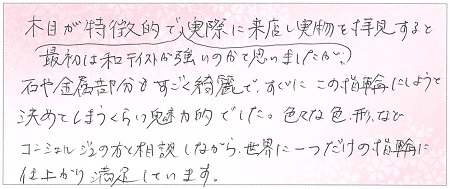 木目が特徴的で、実際に来店し実物を拝見すると
最初は和テイストが強いのかと思いましたが、
石や金属部分もすごく綺麗で、すぐにこの指輪にしようと
決めてしまうくらい魅力的でした。色々な色、形、など
コンシェルジュの方と相談しながら、世界に一つだけの指輪に
仕上がり満足しています。